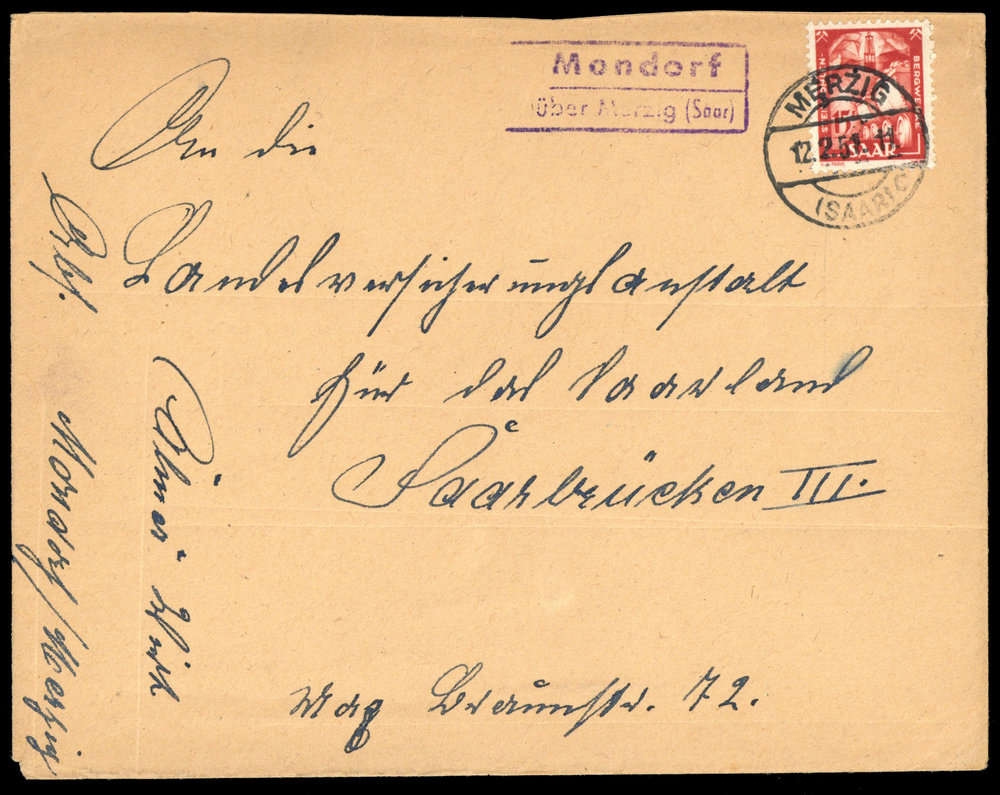 Mondorf
über Merzig (Saar)
BERGWE
15
SAAR
MERZIG
12.2.51.11
(SAAR) C
An die
Landesversicherungsanstalt
für das Saarland
Saarbrücken III.
May Braunstr. 72.
Abs.
Mondorf/Merzig